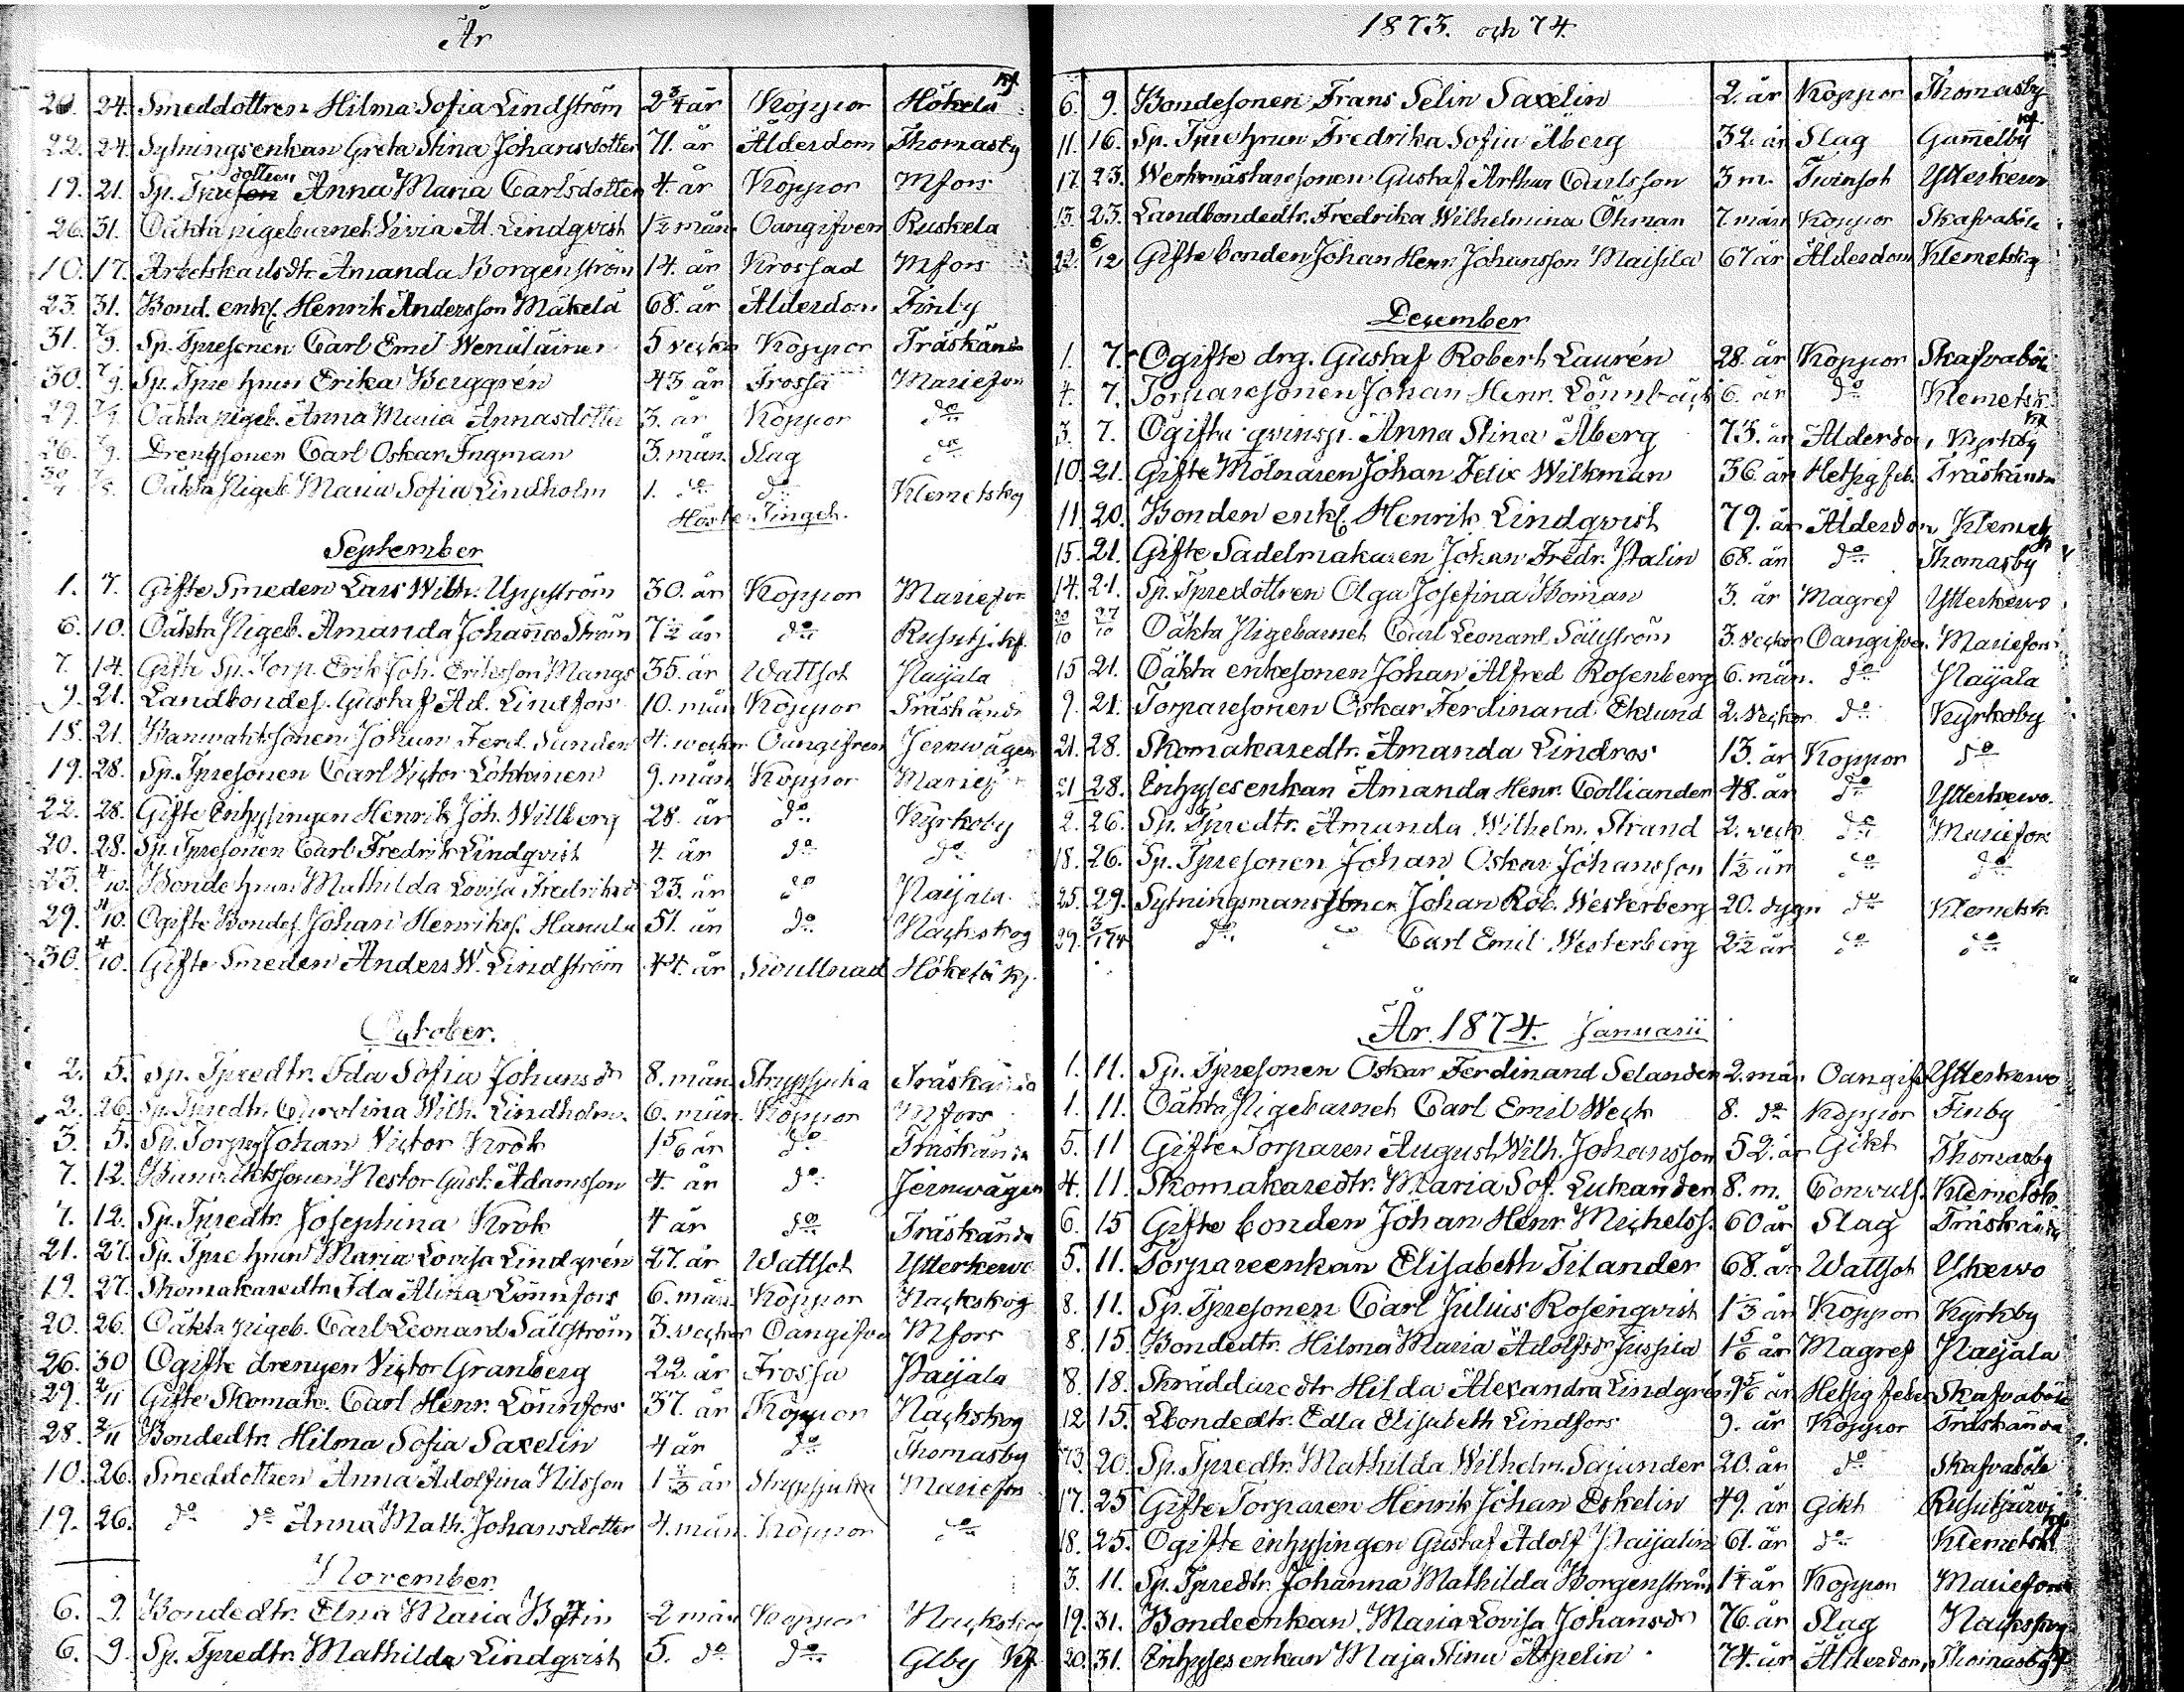 År
20. 24. Smeddottren Hilma Sofia Lindström 2¾ år Koppor Hökelä kf.
22. 24. Sytningsenkan Greta Stina Johansdotter 71. år Ålderdom Thomasby
19. 21. Sp. Tpredottren Anna Maria Carlsdotter 4. år Koppor Mfors
26. 31. Oäkta pigebarnet Vivia Al. Lindqvist 1½ mån. Oangifven Ruskela
10. 17. Arbetskarlsdtr. Amanda Borgenström 14. år Krossad Mfors
23. 31. Bond. enkl. Henrik Andersson Mäkelä 68. år Ålderdom Finby
31. 7/9. Sp. Tpresonen Carl Emil 5 veckor Koppor Träskända
30. 7/9. Sp. Tpre hrun Erika Berggrén 43 år Frossa Mariefors
29. 7/9. Oäkta pigeb. Anna Maria Annasdotter 3. år Koppor do
26. 7/9. Drengsonen Carl Oskar Ingman 3. mån. Slag do
Oäkta Pigeb. Maria Sofia Lindholm 1. do do Klemetskog
Höste Tinget.
September
1. 7. Gifte Smeden Lars Wilh. Uppström 30. år Koppor Mariefors
6. 10. Oäkta Pigeb. Amanda Johanna Ström 7½ år do Rusutj. kf.
7. 14. Gifte Sp. Torp. Erik Joh. Eriksson Mangs 35. år Wattsot Paijala
9. 21. Landbondes. Gustaf Ad. Lindfors 10. mån Koppor Träskända
18. 21. Banwaktsonen Johan Ferd. Sundén 4. weckor Oangifven Jernwägen
19. 28. Sp. Tpresonen Carl Victor Lökkinen 9. mån Koppor Marief
22. 28. Gifte Enhysingen Henrik Joh. Willberg 28. år do Kyrkoby
20. 28. Sp. Tpresonen Carl Fredrik Lindqvist 4. år do do
23. 4/10. Bonde hrun Mathilda Lovisa Fredriksd 23. år do Paijala.
29. 4/10. Ogifte Bondes. Johan Henriks. Hanula 51. år do Nackskog
30. 4/10. Gifte Smeden Anders W. Lindström 44. år Swullnad Hökelä kf.
October.
2. 5. Sp. Tpredtr. Ida Sofia Johansdr 8. mån Strypsjuka Träskända
2. 26. Sp. Tpredtr. Carolina Wilh. Lindholm. 6. mån. Koppor Mfors
3. 5. Sp. Torps. Johan Victor Krok 1 5/6 år do Träskända
7. 12. Banwaktssonen Nestor Gust. Adamsson 4. år do Jernwägen
7. 12. Sp. Tpredtr. Josephina Krok 4 år do Träskända
21. 27. Sp. Tpre hrun Maria Lovisa Lindgrén 27. år Wattsot Ytterkewo
19. 27. Skomakaredtr. Ida Alina Lönnfors 6. mån. Koppor Nackskog
20. 26. Oäkta pigeb. Carl Leonard Sällström 3. veckor Oangifven Mfors
26. 30 Ogifte drengen Victor Granberg 22. år Frossa Paijala
29. 2/11 Gifte Skomak. Carl Henr. Lönnfors 37. år Koppor Nackskog
28. 2/11 Bondedtr. Hilma Sofia Saxelin 4 år do Thomasby
10. 26. Smeddottren Anna Adolfina Nilsson 1 år Strypsjuka Mariefors
19. 26. do do Anna Math. Johansdotter 4. mån. Koppor do
November
6. 9. Bondedtr. Elna Maria 2 mån Koppor Nackskog
6. 9. Sp. Tpredtr. Mathilda Lindqvist 5. do do Glby Kf.
1873. och 74.
6. 9. Bondesonen Frans Selin Saxelin 2. år Koppor Thomasby
11. 16. Sp. Tpre hrun Fredrika Sofia Åberg 32. år Slag Gammelby kf.
17. 23. Werkmästaresonen Gustaf Arthur Carlsson 3 m. Twinsot Ytterkewo
13. 23. Landbondedtr. Fredrika Wilhelmina Öhman 7. mån Koppor Skafvaböle
22. 6/12 Gifte bonden Johan Henr. Johansson Maisila 67 år Ålderdom Klemetskog
December
1. 7. Ogifte drg. Gustaf Robert Laurén 28. år Koppor Skafvaböle
4. 7. Torparesonen Johan Henr. Lönnbäck 6. år do Klemetsk.
3. 7. Ogifta qvinsp. Anna Stina Åberg 73. år Ålderdom Kyrkby kf
10. 21. Gifte Mölnaren Johan Felix Wilkman 36. år Hetsig feb. Träskända
11. 20. Bonden enkl. Henrik Lindqvist 79. år Ålderdom Klemetsk
15. 21. Gifte Sadelmakaren Johan Fredr. Stalin 68. år do Thomasby
14. 21. Sp. Tpredottren Olga Josefina Boman 3. år Magref Ytterkewo
20/10 27/10 Oäkta Pigebarnet Carl Leonard Sällström 3. veckor Oangifven Mariefors
15 21. Oäkta enkesonen Johan Alfred Rosenberg 6. mån. do Paijala
9. 21. Torparesonen Oskar Ferdinand Eklund 2. veckor do Kyrkoby
21. 28. Skomakaredtr. Amanda Lindros 13. år Koppor do
21 28. Enhysesenkan Amanda Henr. Colliander 48. år do Ytterkewo.
2. 26. Sp. Tpredtr. Amanda Wilhelm. Strand 2. veck. do Mariefors
18. 26. Sp. Tpresonen Johan Oskar Johansson 1½ år do do
25. 29. Sytningsmanssonen Johan Rob. Westerberg 20. dygn do Klemetsk
29. 3/1 74 do do Carl Emil Westerberg 2½ år do do
År. 1874. Januarii
1. 11. Sp. Tpresonen Oskar Ferdinand Selander 2. mån Oangif Ytterkewo
1. 11. Oäkta Pigebarnet Carl Emil Weck 8. do Koppor Finby
5. 11 Gifte Torparen August Wilh. Johansson 52. år Gikt Thomasby
4. 11. Skomakaredtr. Maria Sof. Lukander 8. m. Convuls. Klemetsk
6. 15 Gifte bonden Johan Henr. Michelss. 60 år Slag Träskända
5. 11. Torpareenkan Elisabeth Tilander 68. år Wattsot Ykewo
8. 11. Sp. Tpresonen Carl Julius Rosenqvist 1⅓ år Koppor Kyrkby
8. 15. Bondedtr. Hilma Maria Adolfsdr Jussila 1 5/6 år Magref Paijala
8. 18. Skräddaredtr Hilda Alexandra Lindgrén 9 5/6 år Hetsig feber Skafvaböle
12 15. Lbondedtr. Edla Elisabeth Lindfors 9. år Koppor Träskända
13. 20. Sp. Tpredtr. Mathilda Wilhelm. Sajunder 20. år do Skafvaböle
17. 25 Gifte Torparen Henrik Johan Eskelin 49. år Gikt Rusutjärvi
18. 25. Ogifte inhysingen Gustaf Adolf Paijalin 61. år do Klemetsk kf
3. 11. Sp. Tpredtr. Johanna Mathilda Borgenström 1¼ år Koppor Mariefors
19. 31. Bondeenkan Maria Lovisa Johansdr 76. år Slag Nackskog
20. 31. Enhysesenkan Maja Stina Äpelin 74. år Ålderdom Thomasby